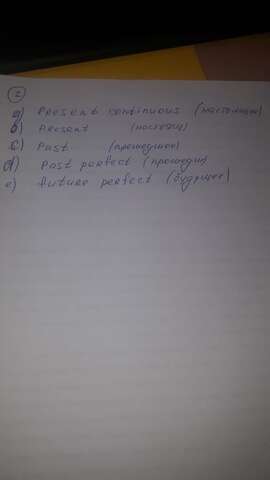 2
a) Present continuous (настоящее)
b) Present (настоящ)
c) Past (прошедшее)
d) Past perfect (прошедш)
e) future perfect (будущее)